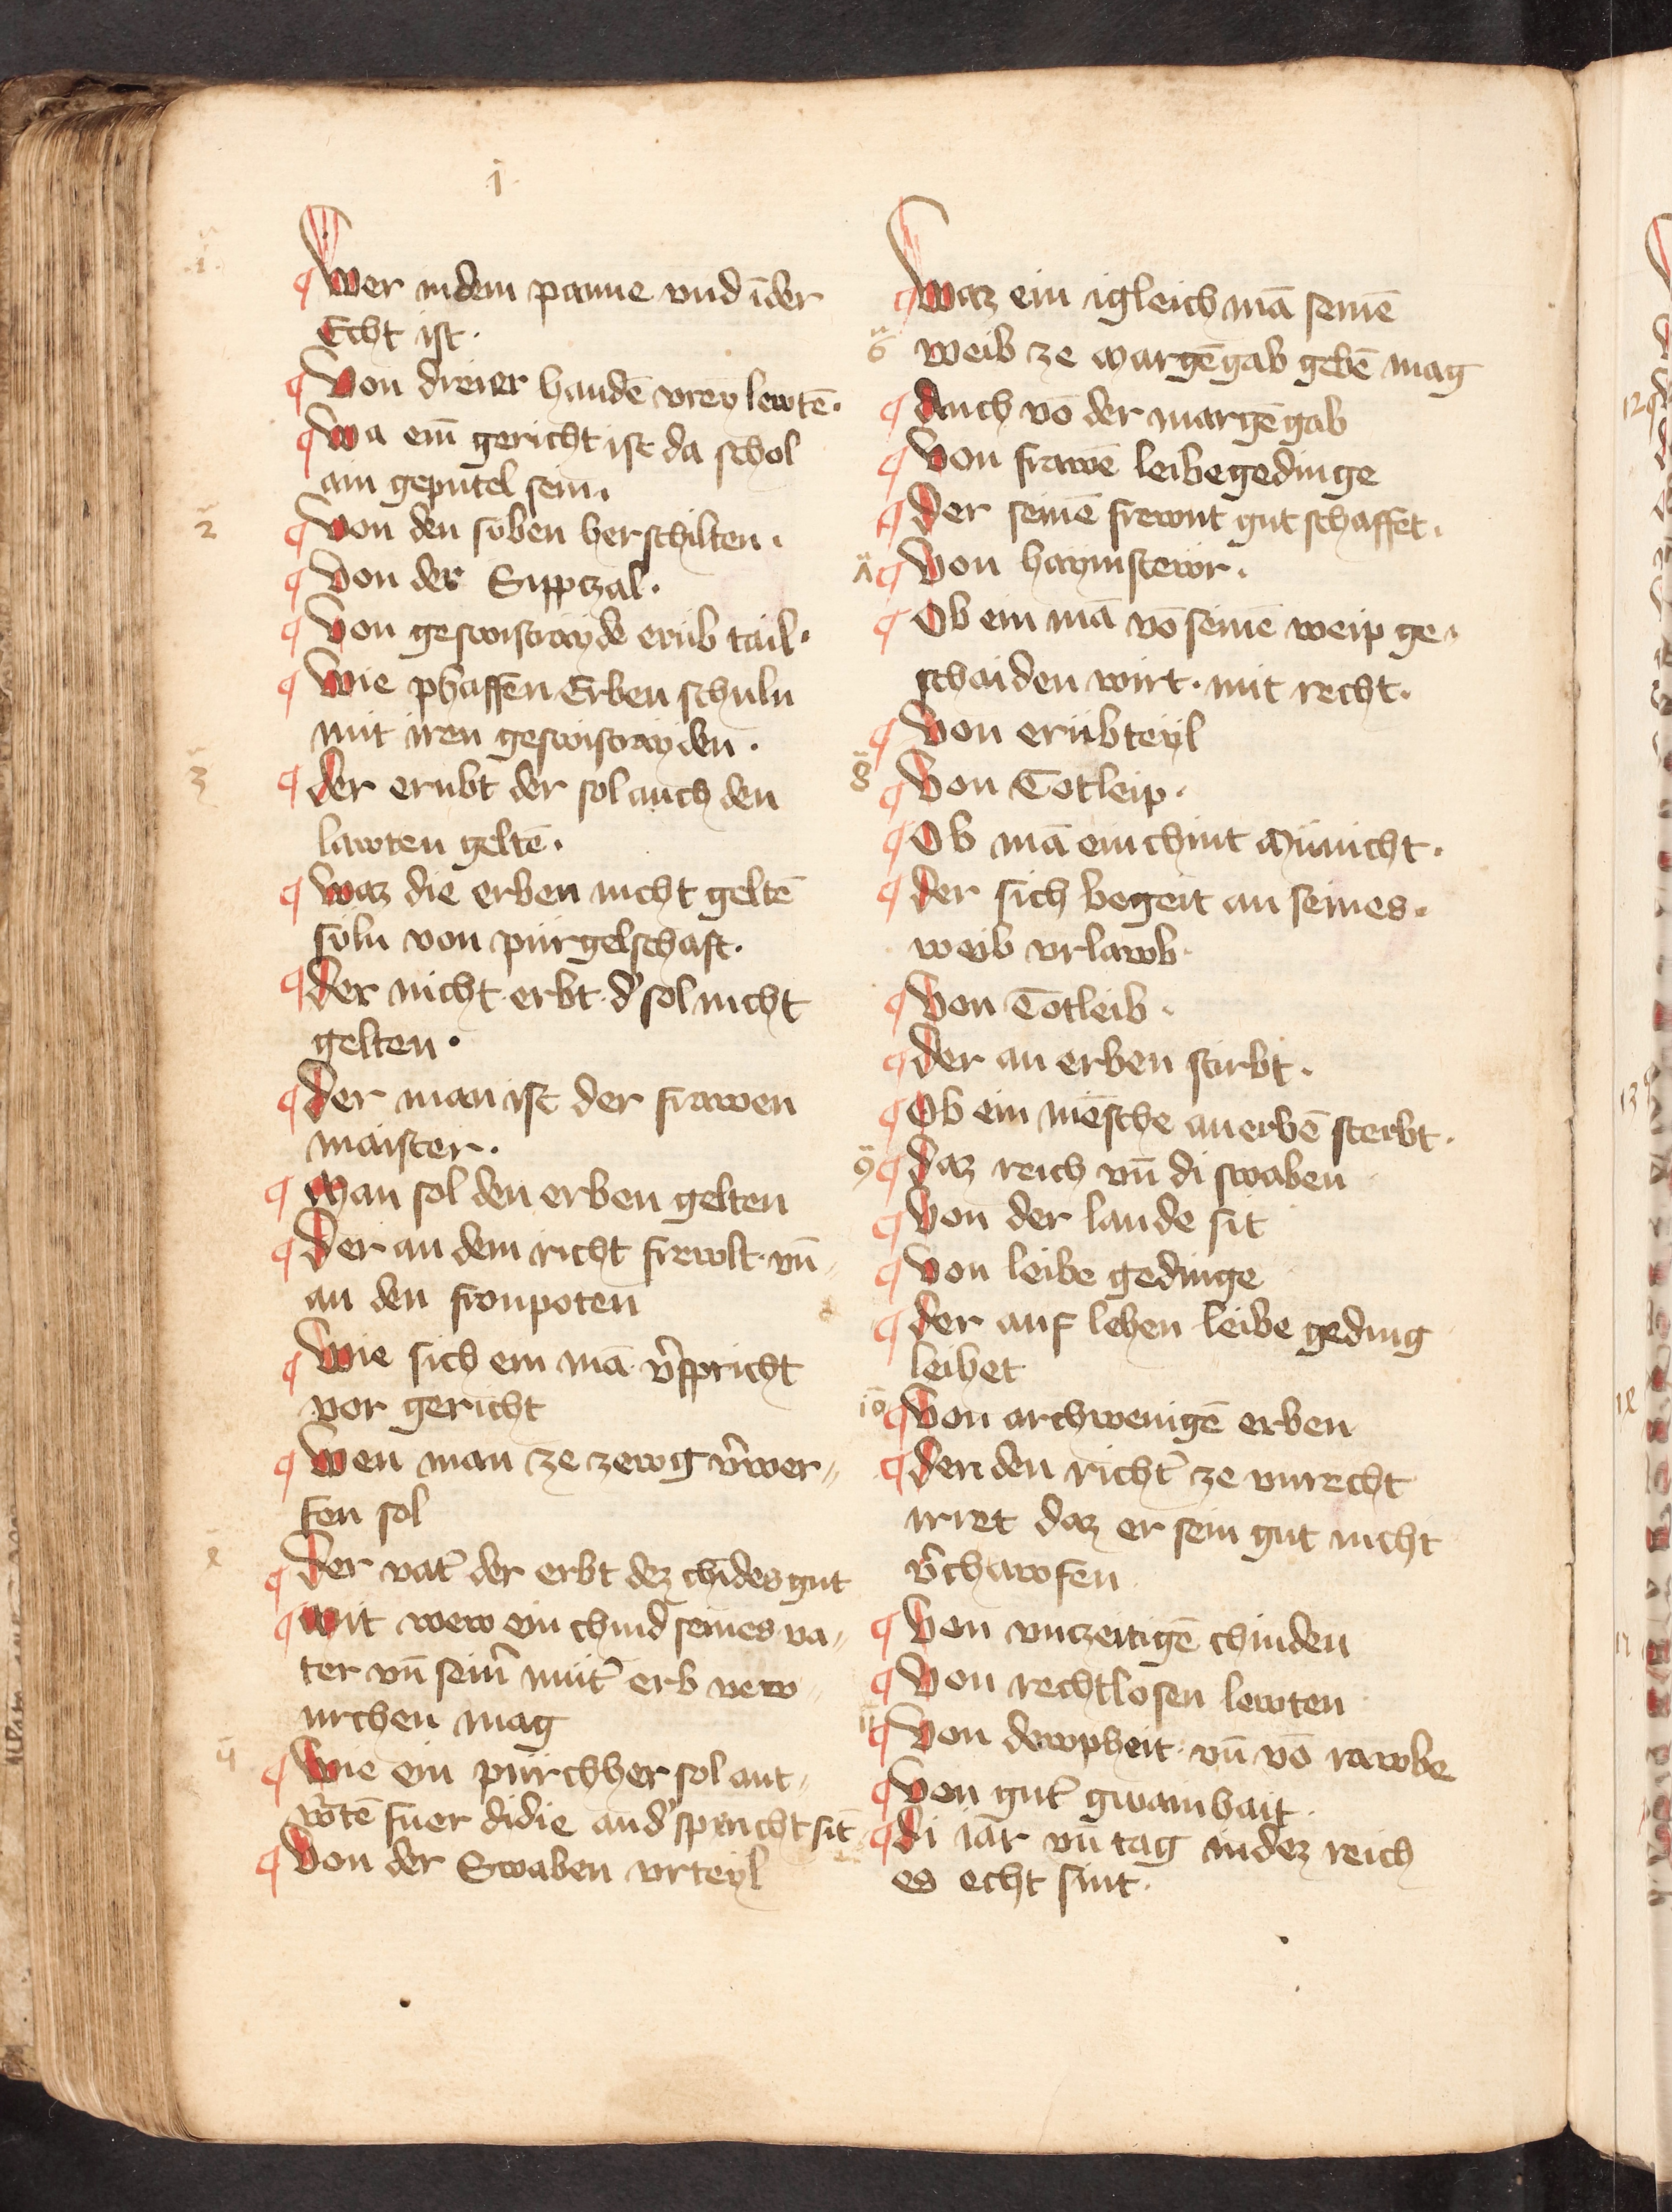 1
¶ Wer in dem panne vnd ī der
Echt ist.
¶ Von dreier handē vrey lewtē.
¶ Wa ein gericht ist da schol
ain geputel sein.
2 ¶ Von den siben herschilten.
¶ Von der Sippczal.
¶ Von geswistrayde erib tail.
¶ Wie phaffen Erben schuln
mit iren geswistrayden.
3 ¶ der erubt der sol auch den
lawten geltē.
¶ Waz die erben nicht geltē
süln von pürgelschaft.
¶ der nicht erbt d' sol nicht
gelten.
¶ Der man ist der frawen
maister.
¶ Man sol den erben gelten
¶ Der an dem richt frewlt vn̄
an den fronpoten
¶ Wie sich ein mā v̄spricht
vor gericht
¶ Wen man ze zewg v̄wer„
fen sol
4 ¶ Der vat̄ der erbt dez chīdes gut
¶ Mit wew ein chind seines va„
ter vn̄ sein̄ mut̄ erb verw„
urchen mag
¶ Wie ein purchher sol ant„
w̄tē fuer di die an d' spricht sit
¶ Von der Swaben vrteyl
¶ Waz ein igleich mā seinē
6 weib ze margēgab gebē mag
¶ Auch vō der margēgab
¶ Von frawē leibegedinge
¶ Der seinē frewnt gut schaffet.
7 ¶ Von haymstewr.
¶ Ob ein mā vō seinē weip ge„
schaiden wirt. mit recht.
¶ Von erübteyl
8 ¶ Von Totleip.
¶ Ob mā ein chint Münicht.
¶ der sich begeit an seines.
weib vrlawb.
¶ Von Totleib.
¶ der an erben stirbt.
¶ Ob ein mēsche an erbē sterbt.
9 ¶ Daz reich vn̄ di swaben
¶ Von der lande sit
¶ Von leibe gedinge
¶ der auf lehen leibe geding
leihet
10 ¶ Von archwenigē erben
¶ der den richt̄ ze vnrecht
irret daz er sein gut nicht
v̄chawfen
¶ Von vnczeitigē chinden
¶ Von rechtlosen lewten
11 ¶ Von dewpheit vn̄ vō rawbe
¶ Von gut̄ gwainhait.
¶ di iar vn̄ tag in dez reich
es echt sint.